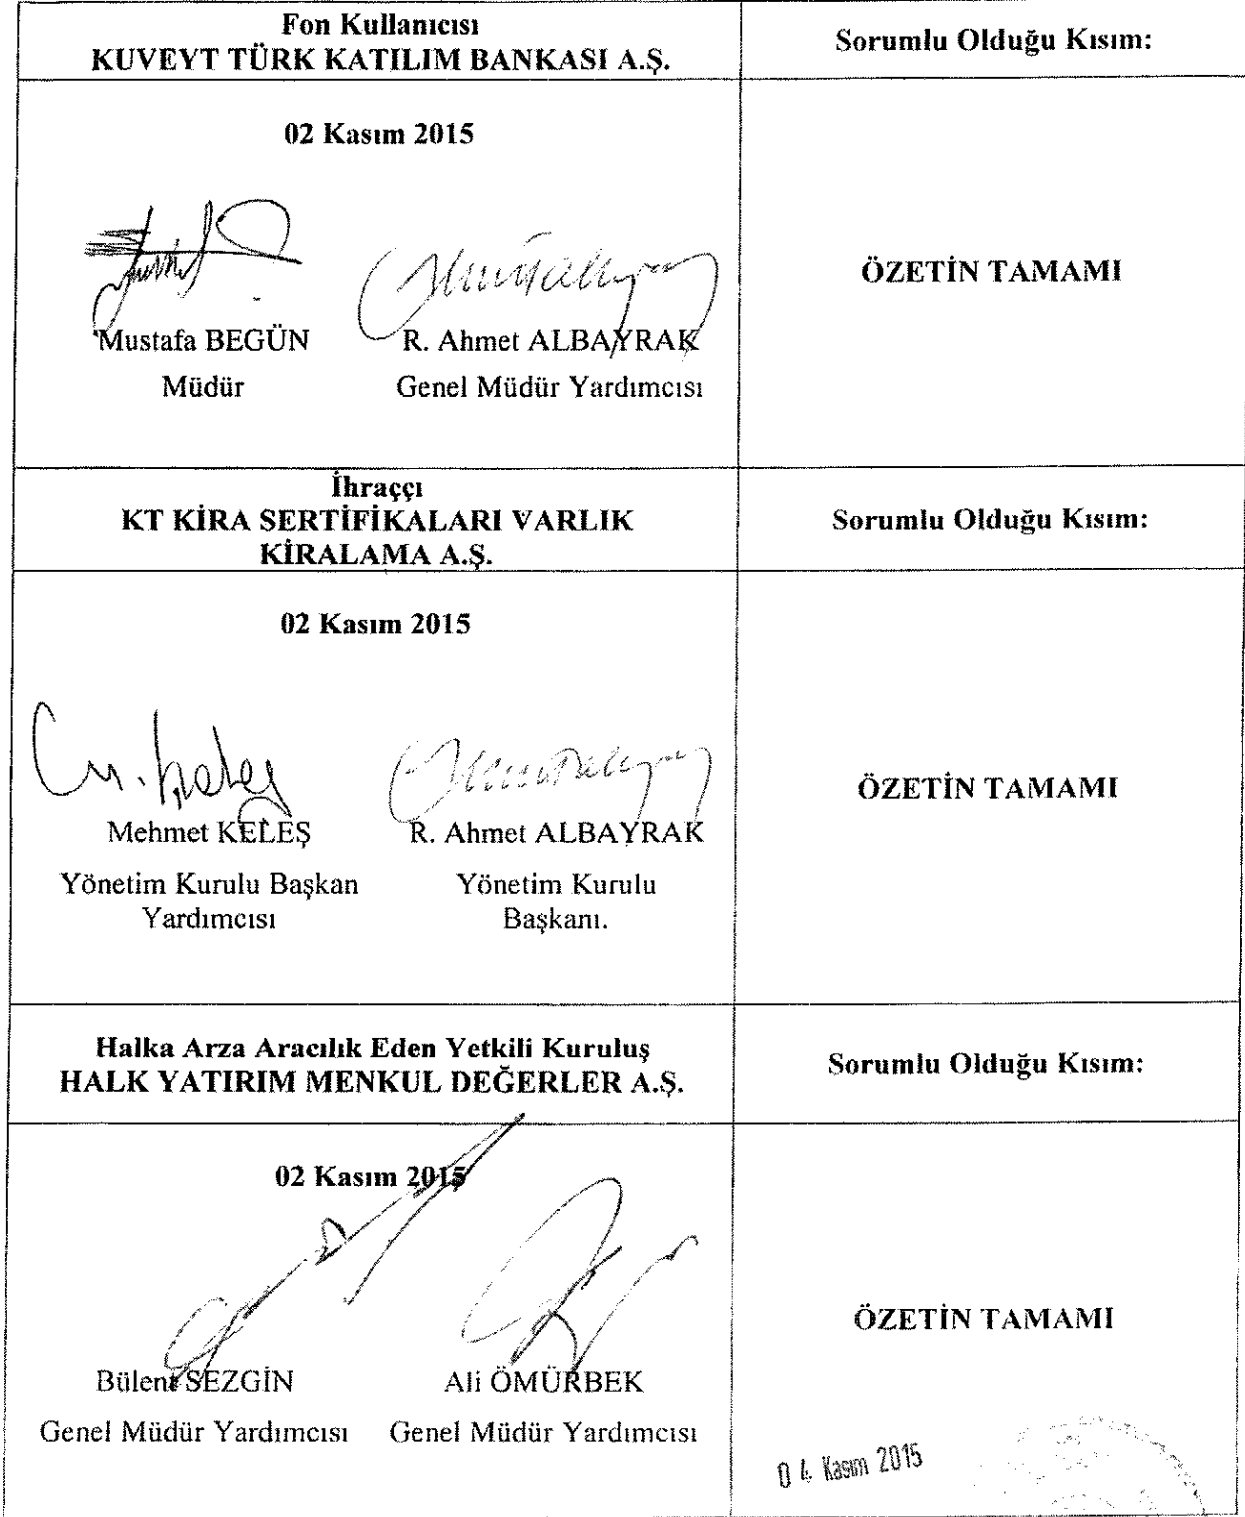 Fon Kullanıcısı
KUVEYT TÜRK KATILIM BANKASI A.Ş.
Sorumlu Olduğu Kısım:
02 Kasım 2015
Mustafa BEGÜN
Müdür
R. Ahmet ALBAYRAK
Genel Müdür Yardımcısı
ÖZETİN TAMAMI
İhraççı
KT KİRA SERTİFİKALARI VARLIK
KİRALAMA A.Ş.
Sorumlu Olduğu Kısım:
02 Kasım 2015
M. Keleş
Mehmet KELEŞ
Yönetim Kurulu Başkan
Yardımcısı
R. Ahmet ALBAYRAK
Yönetim Kurulu
Başkanı.
ÖZETİN TAMAMI
Halka Arza Aracılık Eden Yetkili Kuruluş
HALK YATIRIM MENKUL DEĞERLER A.Ş.
Sorumlu Olduğu Kısım:
02 Kasım 2015
Bülent SEZGİN
Genel Müdür Yardımcısı
Ali ÖMÜRBEK
Genel Müdür Yardımcısı
ÖZETİN TAMAMI
04 Kasım 2015